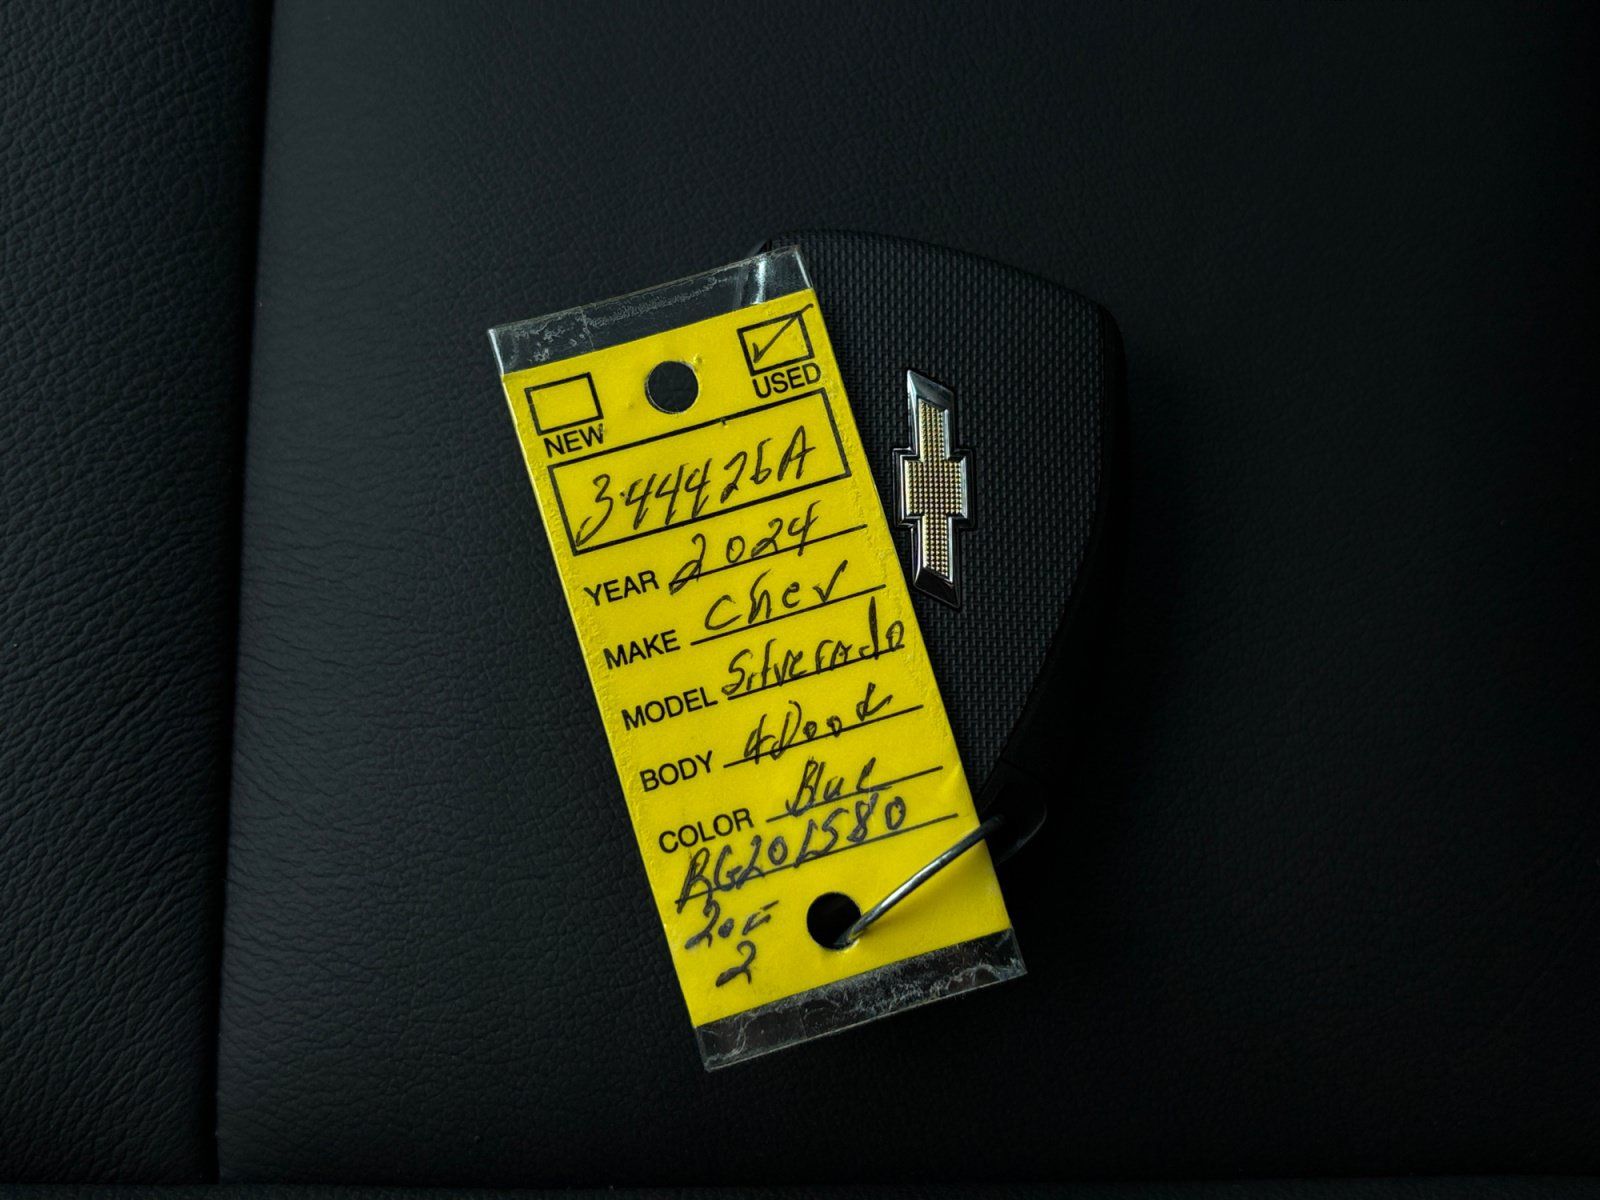 NEW USED
344426A
YEAR 2024
MAKE Chev
MODEL Silverado
BODY 4Door
COLOR Blue
RG201580
20=
2